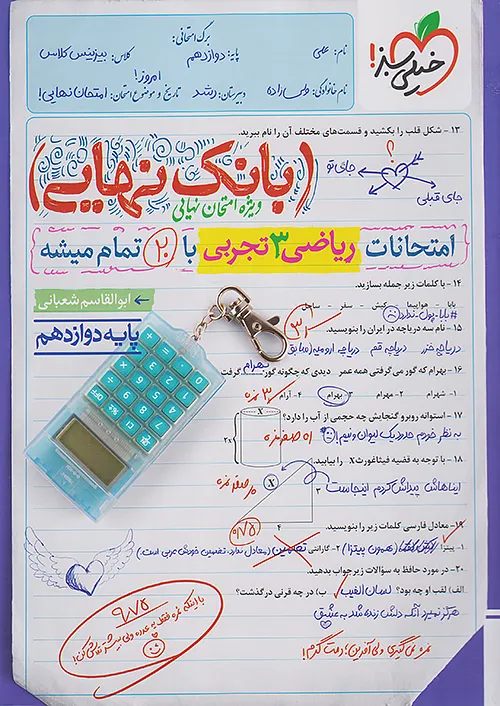 خیلی سبز!
برگ امتحانی:
نام: علی
پایه: دوازدهم
کلاس: بیزینس کلاس
نام خانوادگی: ولی زاده
دبیرستان: رشد
تاریخ و موضوع امتحان: امروز! امتحان نهایی!
۱۳ - شکل قلب را بکشید و قسمت‌های مختلف آن را نام ببرید.
؟
جای تو
جای قبلی
(بانک نهایی)
ویژه امتحان نهایی
امتحانات ریاضی ۳ تجربی با ۲۰ تمام میشه
۱۴ - با کلمات زیر جمله بسازید.
بابا - هواپیما - کیش - سفر - ساحل
#بابا_پول_نداره
← ابوالقاسم شعبانی
پایه دوازدهم
۱۵ - نام سه دریاچه در ایران را بنویسید.
دریاچه خزر دریاچه قم دریاچه ارومیه (سابق)
۱۶ - بهرام که گور می‌گرفتی همه عمر دیدی که چگونه گور بهرام گرفت
۱- شهرام ۲- مهرام ۳- بهرام ۴- آرام
۱۷ - استوانه روبرو گنجایش چه حجمی از آب را دارد؟
به نظر خودم حدود یک لیوان ونیم!
X
2x
۱۸ - با توجه به قضیه فیثاغورث X را بیابید.
ایناهاش پیداش کردم اینجاست
X
۳
۴
۱۹ - معادل فارسی کلمات زیر را بنویسید.
۱- پیتزا (همون پیتزا) ۲- گارانتی تضمین (معادل ندارد، تضمین خودش عربی است)
۲۰ - در مورد حافظ به سؤالات زیر جواب بدهید.
الف) لقب او چه بود؟ لسان الغیب ب) در چه قرنی درگذشت؟
هرگز نمیرد آنکه دلش زنده شد به عشق
نمره نمی‌گیری ولی آفرین؛ دمت گرم!
۹/۷۵